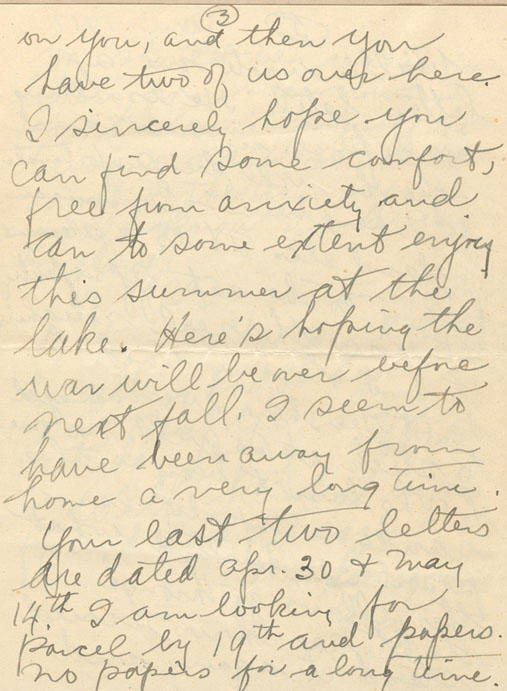 3
on you, and then you
have two of us over here.
I sincerely hope you
can find some comfort,
free from anxiety and
can to some extent enjoy
this summer at the
lake. Here's hoping the
war will be over before
next fall. I seem to
have been away from
home a very long time.
Your last two letters
are dated apr. 30 + may
14th I am looking for
parcel by 19th and papers.
no papers for a long time.